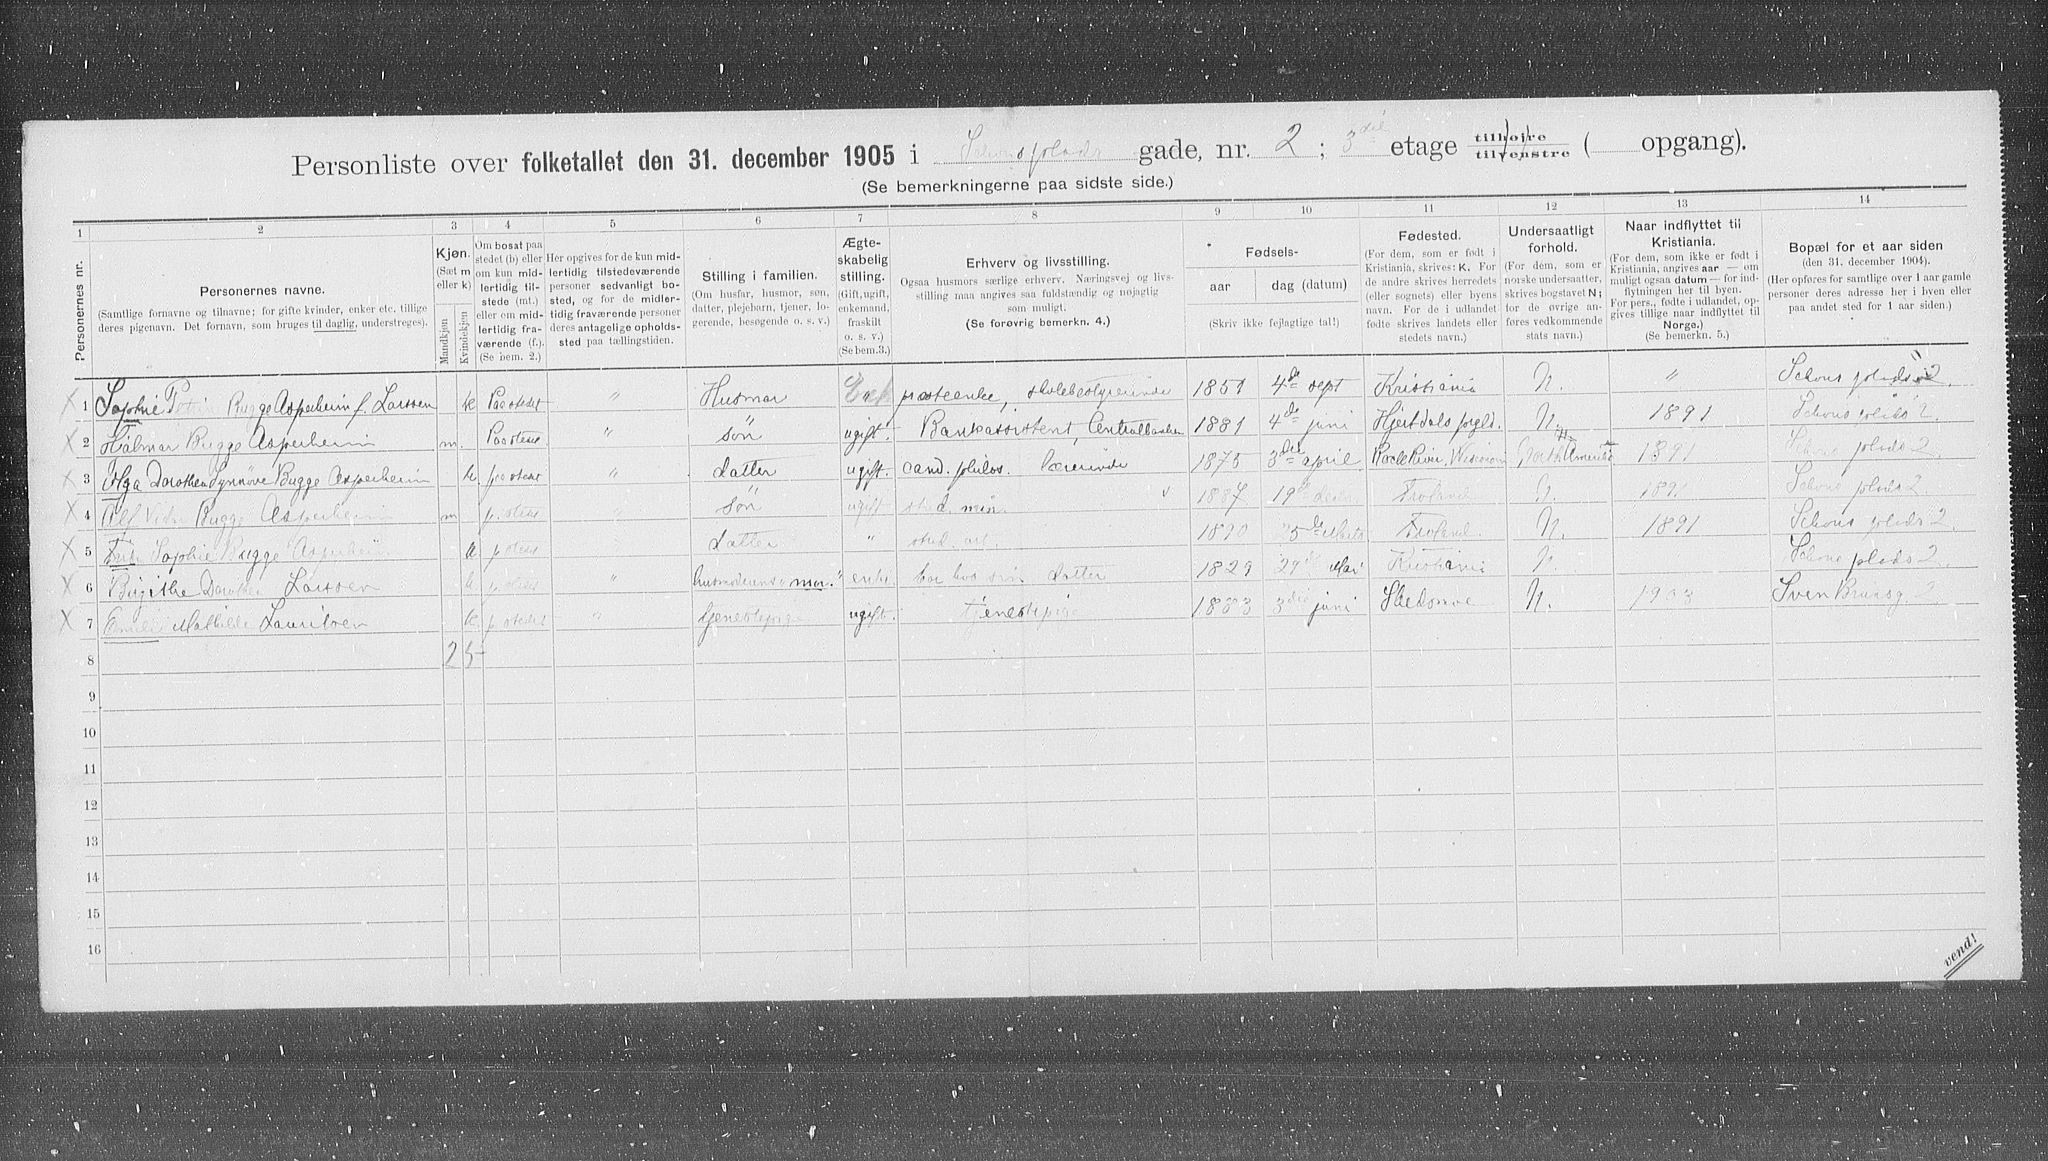 Personliste over folketallet den 31. december 1905 i Schous plads gade, nr. 2 ; 3die etage tilhøjre tilvenstre ( opgang).
(Se bemerkningerne paa sidste side.)
1 2 3 4 5 6 7 8 9 10 11 12 13 14
Personernes nr.
Personernes navne.
(Samtlige fornavne og tilnavne; for gifte kvinder, enker etc. tillige deres pigenavn. Det fornavn, som bruges til daglig, understreges).
Kjøn. (Sæt m eller k)
Mandkjøn Kvindekjøn
Om bosat paa stedet (b) eller om kun midlertidig tilstede (mt.) eller om midlertidig fraværende (f.). (Se bem. 2.)
Her opgives for de kun midlertidig tilstedeværende personer sedvanligt bosted, og for de midlertidig fraværende personer deres antagelige opholdssted paa tællingstiden.
Stilling i familien.
(Om husfar, husmor, søn, datter, plejebarn, tjener, logerende, besøgende o. s. v.)
Ægteskabelig stilling.
(Gift, ugift, enkemand, fraskilt o. s. v.) (Se bem.3.)
Erhverv og livsstilling.
Ogsaa husmors særlige erhverv. Næringsvej og livsstilling maa angives saa fuldstændig og nøjagtig som muligt.
(Se forøvrig bemerkn. 4.)
Fødsels-
aar dag (datum)
(Skriv ikke fejlagtige tal!)
Fødested.
(For dem, som er født i Kristiania, skrives: K. For de andre skrives herredets (eller sognets) eller byens navn. For de i udlandet fødte skrives landets eller stedets navn.)
Undersaatligt forhold.
(For dem, som er norske undersaatter, skrives bogstavet N; for de øvrige anføres vedkommende stats navn.)
Naar indflyttet til Kristiania.
(For dem, som ikke er født i Kristiania, angives aar — om muligt ogsaa datum — for indflytningen her til byen. For pers., fødte i udlandet, opgives tillige naar indflyttet til Norge.)
(Se bemerkn. 5.)
Bopæl for et aar siden
(den 31. december 1904).
(Her opføres for samtlige over 1 aar gamle personer deres adresse her i byen eller paa andet sted for 1 aar siden.)
X 1 Sophie Bugge Asperheim f. Larssen k Paa stedet " Husmor Enke præsteenke, skolebestyrerinde 1851 4de sept Kristiania N. " Schous plads 2.
X 2 Hjalmar Bugge Asperheim m. Paa stedet " søn ugift. Bankassistent, Centralbanken 1881 4de juni Hjertdals prgld. N. 1891 Schous plads 2.
X 3 Olga Dorothea Synnøve Bugge Asperheim k. paa stedet " datter ugift. cand. philos. Lærerinde 1875 3die april 1891 Schous plads 2.
X 4 Alf Bugge Asperheim m p. stedet " søn ugift stud. min. 1887 19de decbr. Froland N. 1891 Schous plads 2
X 5 Sophie Bugge Asperheim k p. stedet datter " stud. art. 1890 5te Froland N. 1891 Schous plads 2
X 6 Birgithe Dorothea Larssen k p. stedet " husmoderens mor. enke bor hos sin datter 1829 27de Mai Kristiania N. Schous plads 2.
X 7 Mathilde Lauritsen k. p. stedet " tjenestepige ugift. tjenestepige 1883 3die juni Skedsmo N. 1903 Sven Brunsg. 2
8 2 5
9
10
11
12
13
14
15
16
vend!